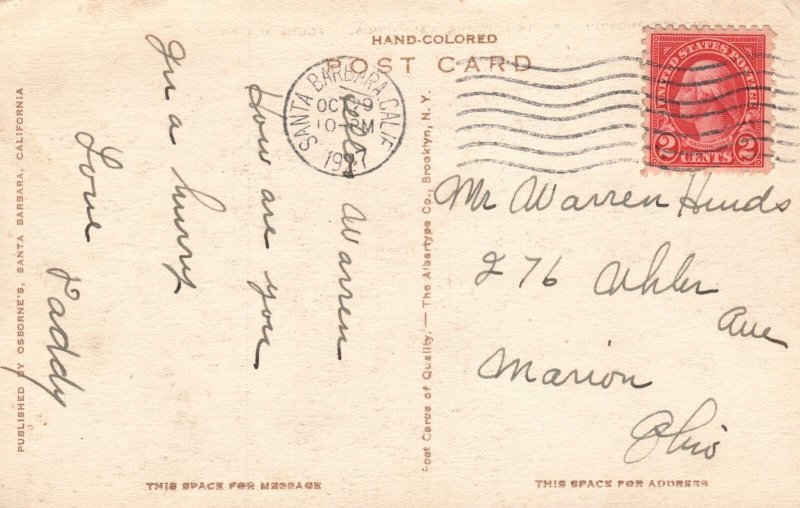 HAND-COLORED
POST CARD
SANTA BARBARA, CALIF
OCT 9
10-PM
1927
UNITED STATES POSTAGE
WASHINGTON
2 CENTS 2
Hello Warren
How are you
In a hurry
Love Daddy
Mr Warren Hinds
276 Uhler
Ave
Marion
Ohio
PUBLISHED BY OSBORNE'S, SANTA BARBARA, CALIFORNIA
Post Cards of Quality. — The Albertype Co., Brooklyn, N. Y.
THIS SPACE FOR MESSAGE
THIS SPACE FOR ADDRESS